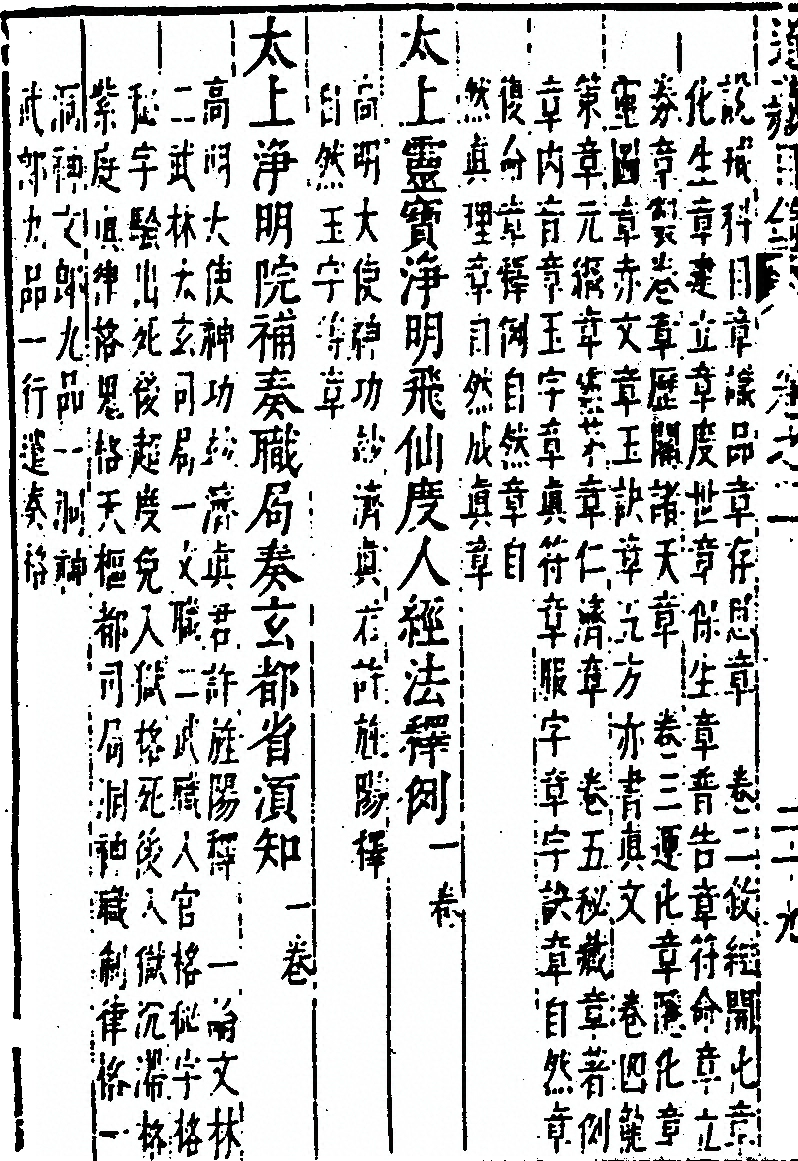 道藏目錄 卷之二 二十九
說戒科目章議品章存思章 卷二敘經開化章
化生章建立章度世章保生章普告章符命章立
券章製卷章歷關諸天章 卷三運化章隱化章
靈圖章赤文章玉訣章元方亦書真文 卷四
策章元綱章紫茅章仁濟章 卷五秘藏章著例
章內音章玉字章真符章服字章字訣章自然章
復命章釋例自然章自
然真理章自然成真章
太上靈寶淨明飛仙度人經法釋例 一卷
高明大使神功妙濟真君許旌陽釋
自然玉字等章
太上淨明院補奏職局奏玄都省須知 一卷
高明大使神功妙濟真君許旌陽釋 一論文林
二武林太玄司局一文職二武職入官格秘字格
秘字驗出死後超度免入獄格死後入獄沉滯格
紫庭真律格鬼格天樞都司局洞神職制律格一
洞神文郎九品一洞神
武郎九品一行遷奏格